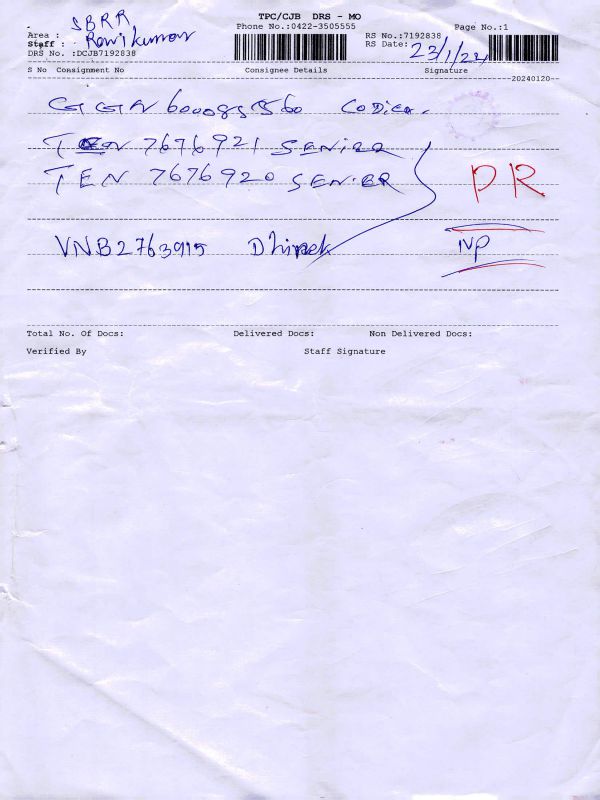 TPC/CJB DRS - MO
Phone No.:0422-3505555
Page No.:1
Area : SBRR
Staff : Ravikumar
RS No.:7192838
RS Date: 23/1/24
DRS No. :DCJB7192838
S No Consignment No Consignee Details Signature
20240120
GGN 600085560
TEN 7676921 SENIER
TEN 7676920 SENIER
PR
VNB2763915 NP
Total No. Of Docs: Delivered Docs: Non Delivered Docs:
Verified By Staff Signature